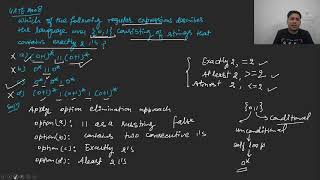 GATE 2008
Which of the following regular expressions describes
the language over {0,1} consisting of strings that
contains exactly 2 1's?
a) (0+1)* 11 (0+1)*
b) 0* 11 0*
c) 0* 1 0* 1 0*
d) (0+1)* 1 (0+1)* 1 (0+1)*
Apply option elimination approach
option(a): 11 as a substring false
option(b): contains two consecutive 1's
option(c): Exactly 2 1's
option(d): Atleast 2 1's
Exactly 2, = 2
Atleast 2, >= 2
Atmost 2, <= 2
{0,1}
conditional
unconditional
self loop
0*